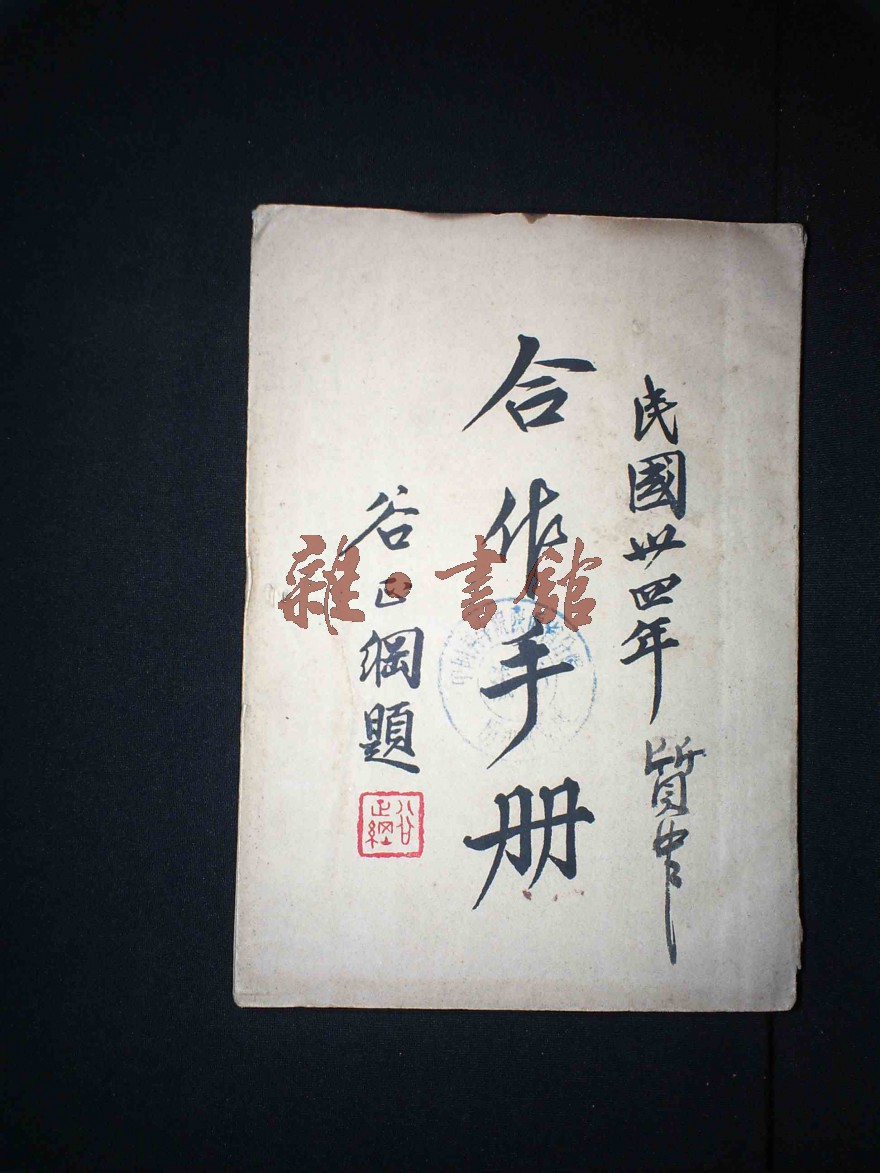 民國卅四年
合作手册
谷正綱題
谷正綱
雜·書館